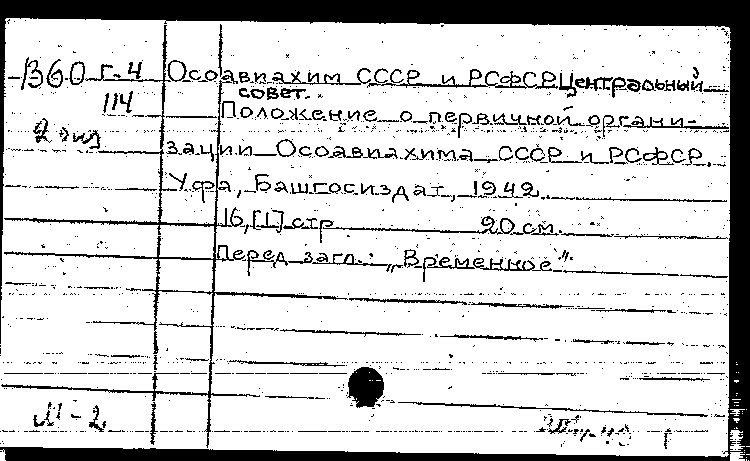 В60 Г-4 Осоавиахим СССР и РСФСР. Центральный
совет.
114 Положение о первичной органи-
2 экз
зации Осоавиахима СССР и РСФСР.
Уфа, Башгосиздат, 1942.
16,[1] стр 20 см.
Перед загл.: „Временное".
М-2